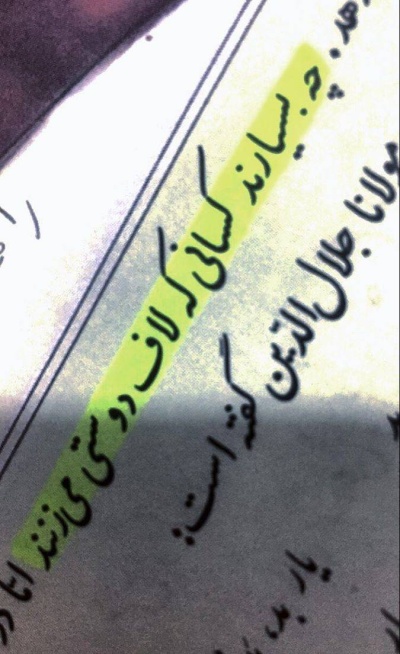 دهد. چه بسیارند کسانی که لاف دوستی می‌زنند امّا در
مولانا جلال‌الدّین گفته است:
یار بد،